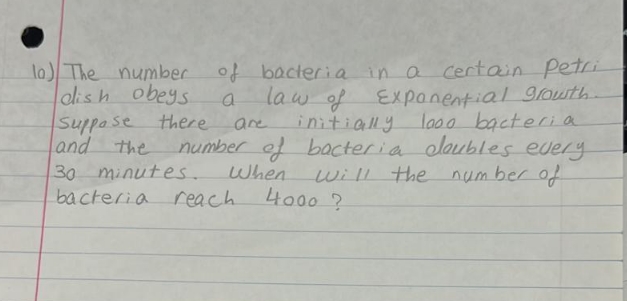 10) The number of bacteria in a certain Petri
dish obeys a law of Exponential growth.
Suppose there are initially 1000 bacteria
and the number of bacteria doubles every
30 minutes. When will the number of
bacteria reach 4000?